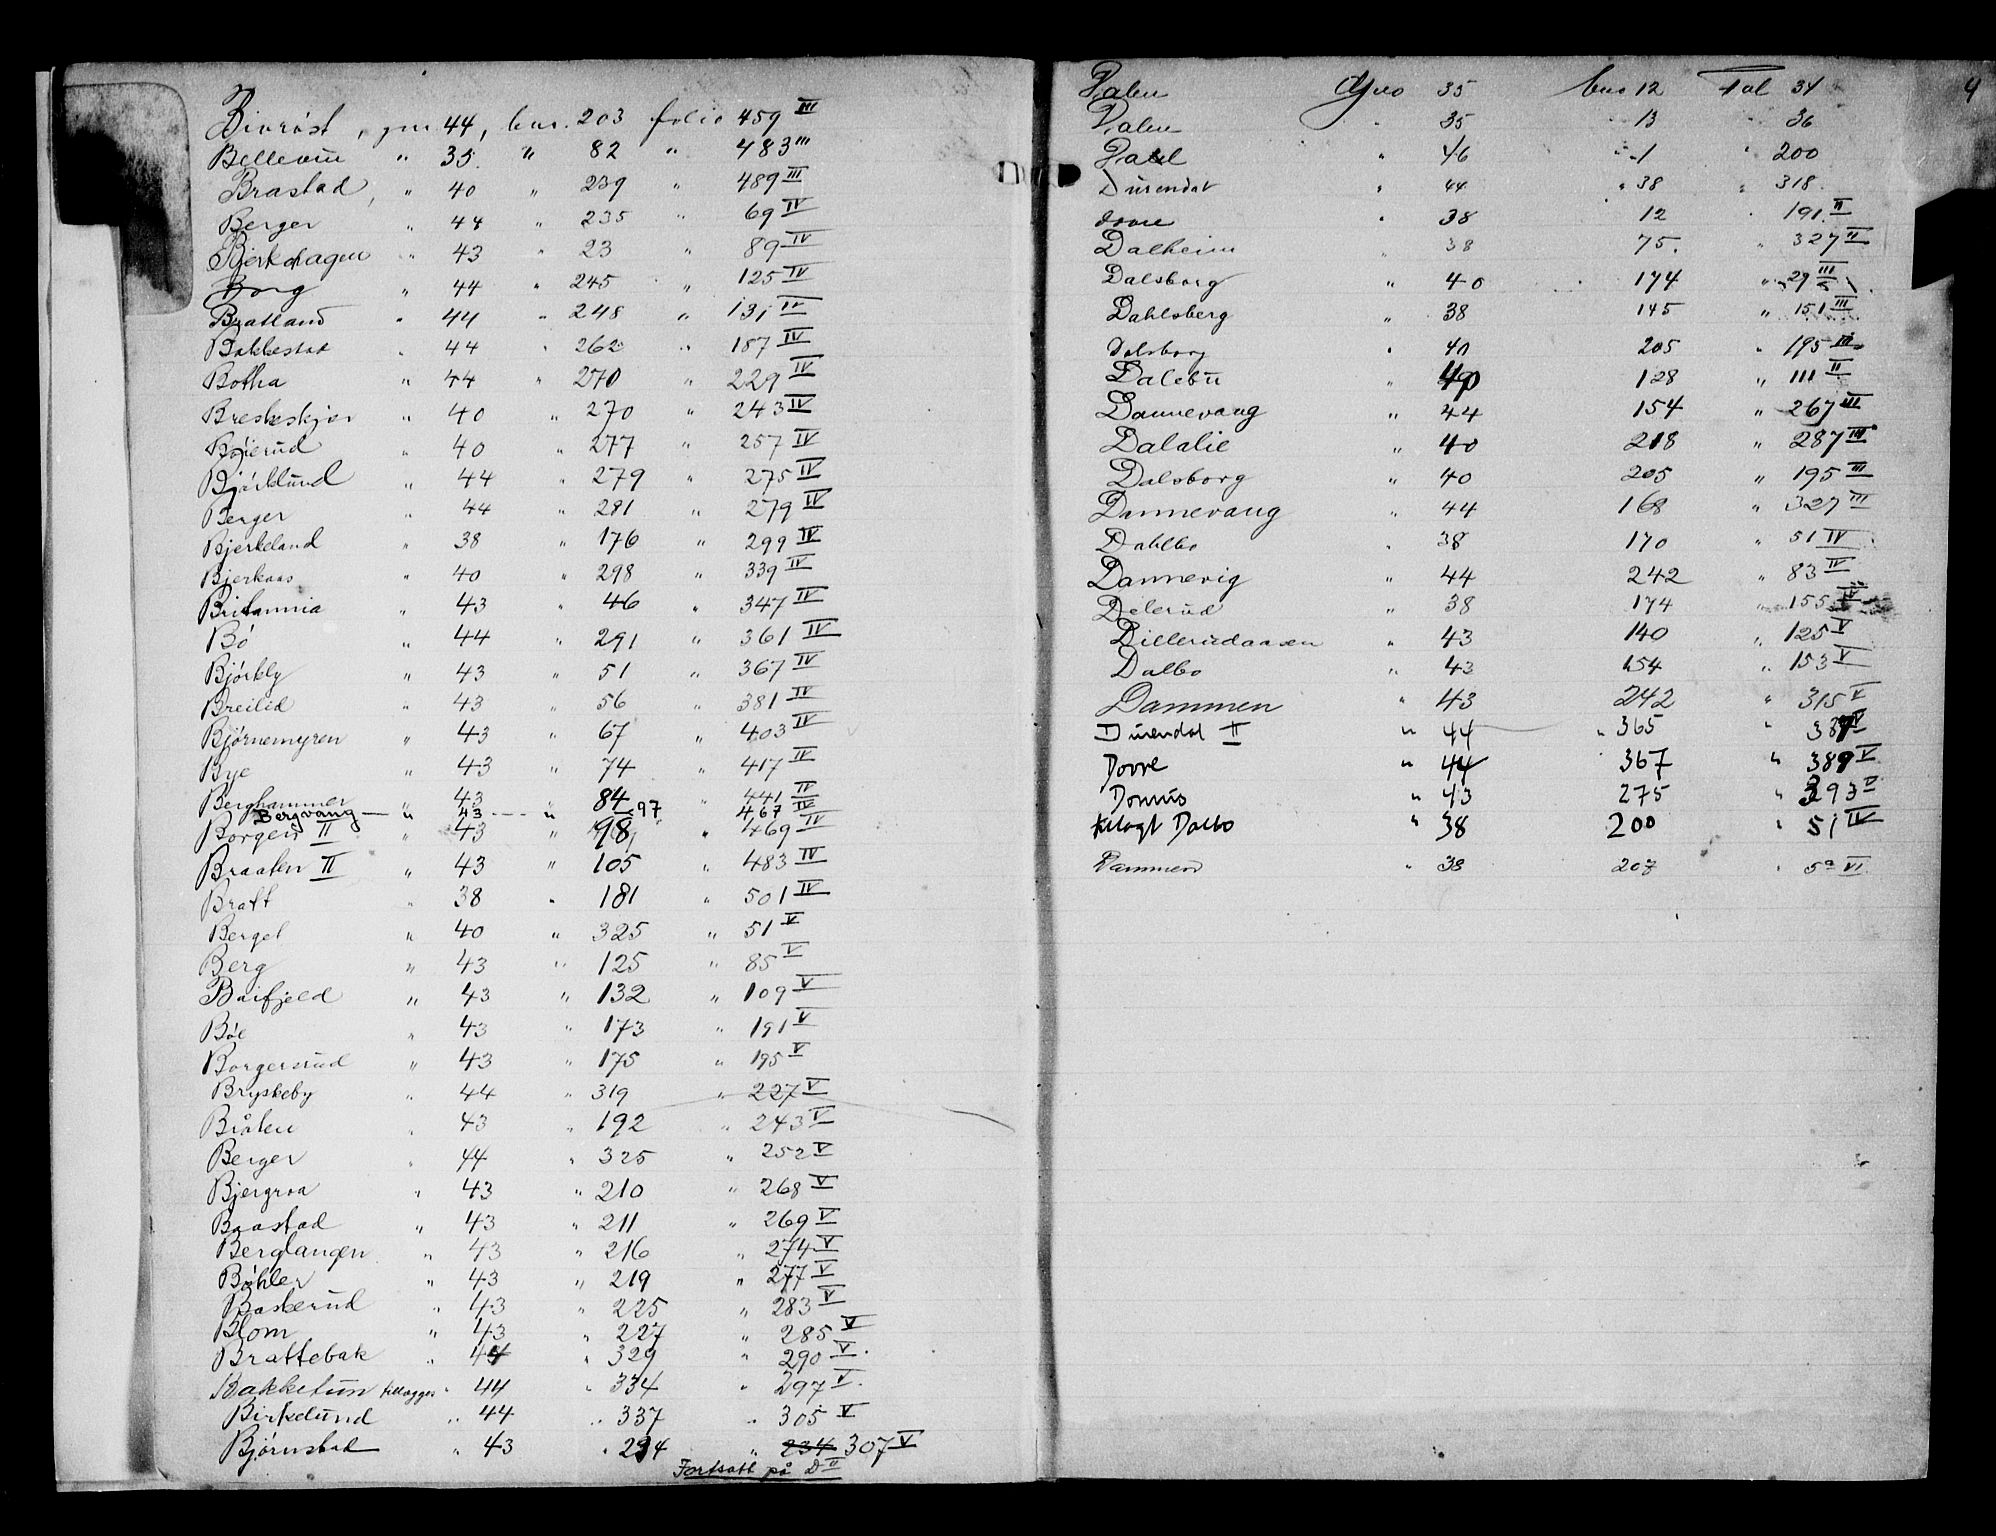 Bivrøst, gnr 44, bnr. 203 folio 459 III
Bellevue " 35 " 82 " 483 III
Brastad, " 40 " 239 " 489 III
Berger " 44 " 235 " 69 IV
Bjerkehagen " 43 " 23 " 89 IV
Borg " 44 " 245 " 125 IV
Bratland " 44 " 248 " 131 IV
Bakkestad " 44 " 262 " 187 IV
Botha " 44 " 270 " 229 IV
Breskeskjær " 40 " 270 " 243 IV
Bøierud " 40 " 277 " 257 IV
Bjørklund " 44 " 279 " 275 IV
Berger " 44 " 281 " 279 IV
Bjerkeland " 38 " 176 " 299 IV
Bjerkaas " 40 " 298 " 339 IV
Britannia " 43 " 46 " 347 IV
Bø " 44 " 291 " 361 IV
Bjørkly " 43 " 51 " 367 IV
Breilid " 43 " 56 " 381 IV
Bjørnemyren " 43 " 67 " 403 IV
Bye " 43 " 74 " 417 IV
Berghammer " 43 " 84 " 441 IV
Bergvang — " 43 --- " 97 467 IV
Borgen II " 43 98 " 469 IV
Braaten II " 43 " 105 " 483 IV
Bratt " 38 " 181 " 501 IV
Berget " 40 " 325 " 51 V
Berg " 43 " 125 " 85 V
Baifjeld " 43 " 132 " 109 V
Bøe " 43 " 173 " 191 V
Borgersrud " 43 " 175 " 195 V
Bryskeby " 44 " 319 " 227 V
Bråten " 43 " 192 " 243 V
Berger " 44 " 325 " 252 V
Bjergroa " 43 " 210 " 268 V
Baastad " 43 " 211 " 269 V
Berglangen " 43 " 216 " 274 V
Bøhler " 43 " 219 " 277 V
Baskerud " 43 " 225 " 283 V
Blom " 43 " 227 " 285 V
Brattebak " 44 " 329 " 290 V
Bakketun tillegges " 44 " 334 " 297 V
Birkelund " 44 " 337 " 305 V
Bjørnstad " 43 " 294 " 234 307 V
Fortsatt på D II
4
Dalen Gno 35 bno 12 Fol 34
Dalen " 35 " 13 " 36
Dahl " 46 " 1 " 200
Durendal " 44 " 38 " 318
Dovre " 38 12 " 191 II
Dalheim " 38 75 " 327 II
Dalsborg " 40 174 " 29 III
Dahlsberg " 38 145 " 151 III
Dalsborg " 40 205 " 195 III
Dalebu " 40 128 " 111 II
Dannevang " 44 154 " 267 III
Dalalie " 40 218 " 287 III
Dalsborg " 40 205 " 195 III
Dannevang " 44 168 " 327 III
Dahlbo " 38 170 " 51 IV
Dannevig " 44 242 " 83 IV
Delerud " 38 174 " 155 IV
Dillerudaasen " 43 140 " 125 V
Dalbo " 43 154 " 153 V
Dammen " 43 242 " 315 V
Durendal II " 44 " 365 " 387 V
Dovre " 44 367 " 389 V
Domus " 43 275 " 393 V
tillagt Dalbo " 38 200 " 51 IV
Dammen " 38 207 " 52 VI